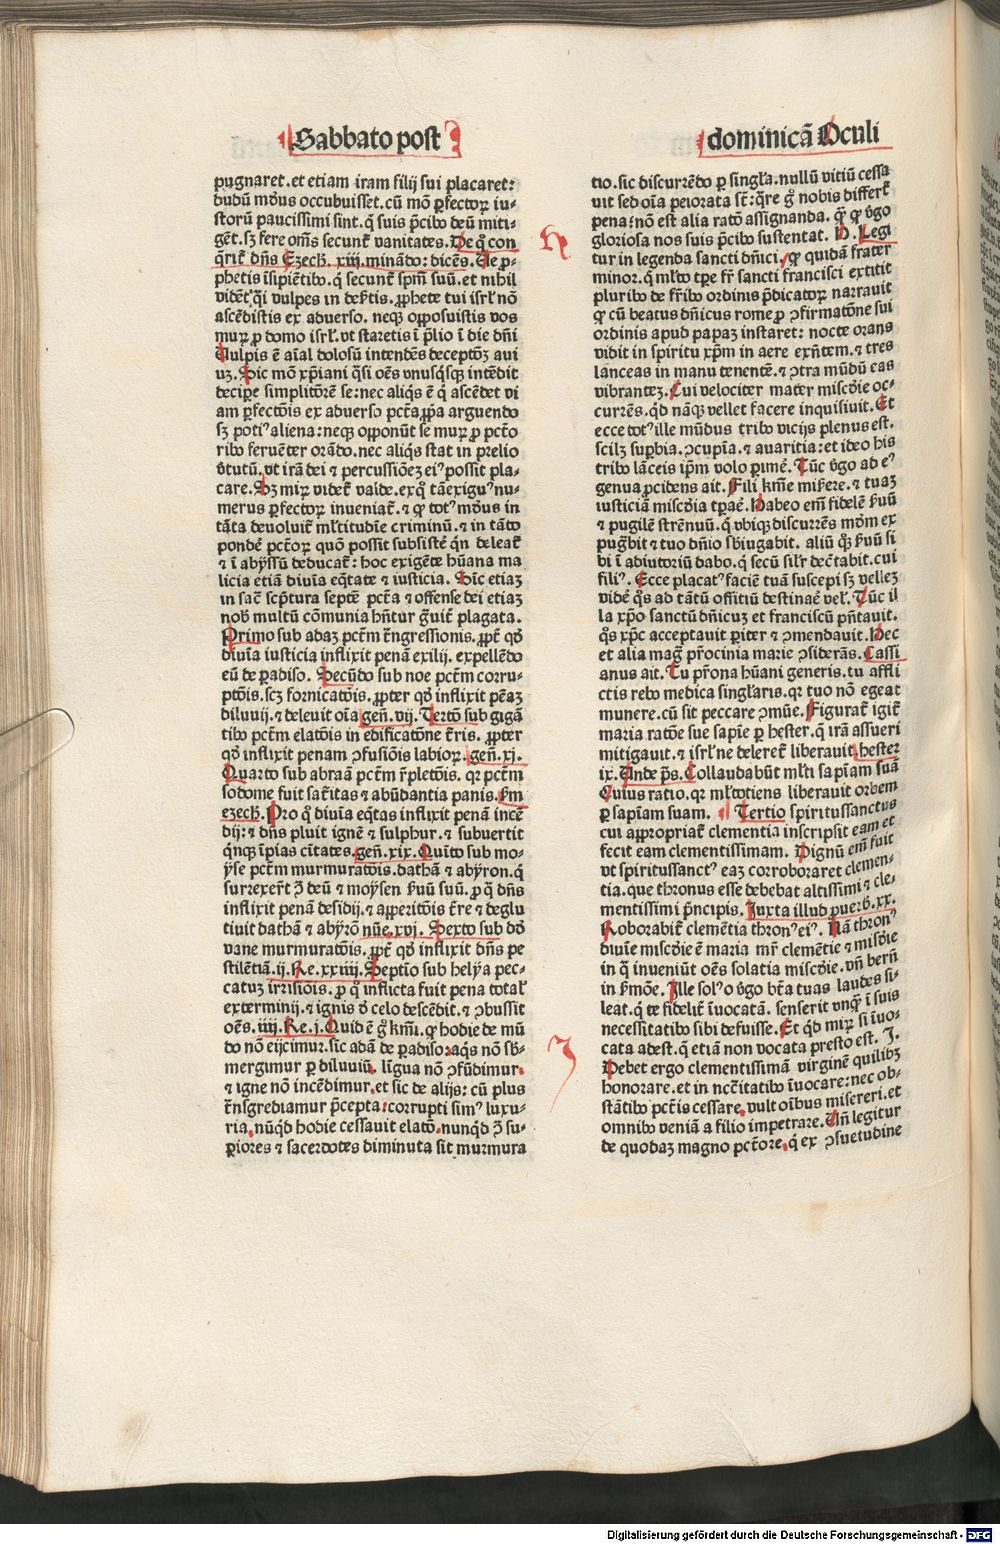 Sabbato post
dominicā Oculi
pugnaret.et etiam iram filij sui placaret:
dudū mūdus occubuisset.cū mō ꝑfectoꝝ iu⸗
storū paucissimi sint.q̇ suis p̄cibꝰ deū miti⸗
gēt.sꝫ fere om̄s secunt᷑ vanitates.De qͥ con
q̄rit᷑ dn̄s Ezech.xiij.minādo: dicēs.Ue ꝓ⸗
phetis īsipiētibꝰ.q̇ secunt᷑ spm̄ suū.et nihil
vidēt.q̇i vulpes in deẜtis.ꝓphete tui isrl̓ nō
ascēdistis ex aduerso. neqꝫ opposuistis vos
muꝝ ꝓ domo isrl̓.vt staretis ī p̄lio ī die dn̄i
Uulpis ē aīal dolosū intendēs deceptōꝫ aui
uꝫ.Sic mō xp̄iani q̇si oēs vnusq̇sqꝫ intēdit
decipe᷑ simplitōrē se:nec aliq̇s ē q̇ ascēdet vi
am ꝑfectōis ex aduerso pctā ꝓp̄a arguendo
sꝫ potiꝰ aliena:neqꝫ opponūt se muꝝ ꝓ pctō
ribꝰ feruēter orādo.nec aliq̇s stat in prelio
v̓tutū.vt irā dei ⁊ percussiōeꝫ eiꝰ possit pla⸗
care.Sꝫ miꝝ videt᷑ valde.exq̇ tā exiguꝰ nu⸗
merus ꝑfectoꝝ inueniat᷑.⁊ ꝙ totꝰ mūdus in
tāta deuoluit᷑ ml̓titudīe criminū.⁊ in tāto
pondē pctōꝝ quō possit subsistē qͥn deleat᷑
⁊ ī abyssū deducat᷑: hoc exigēte hūana ma
licia etiā diuīa eq̄tate ⁊ iusticia. Hīc etiaꝫ
in sac̄ scp̄tura septē pctā ⁊ offense dei etiaꝫ
nob̓ multū cōmunia hn̄tur g̓uit᷑ plagata.
Primo sub adaꝫ pctm̄ t̄nsgressionis. ꝓpt᷑ qd̓
diuīa iusticia inflixit penā exilij. expellēdo
eū de ꝑadiso. Secūdo sub noe pctm̄ corru⸗
ptōis.scꝫ fornicatōis. ꝓpter qd̓ inflixit pēaꝫ
diluuij.⁊ deleuit oīa gen̄.vij. Tertō sub gigā
tibꝰ pctm̄ elatōis in edificatōne t᷑ris. ꝓpter
qd̓ inflixit penam ꝯfusiōis labioꝝ. gen̄.xj.
Quarto sub abraā pctm̄ r̄pletōis. qꝛ pctm̄
sodome fuit sat᷑itas ⁊ abūdantia panis. ẜm
ezech̄. Pro q̇ diuīa eq̄tas inflixit penā incē
dij:⁊ dn̄s pluit ignē ⁊ sulphur.⁊ subuertit
q̇nqꝫ īpias ciītates.gen̄.xix. Quīto sub mo⸗
yse pctm̄ murmuratōis.dathā ⁊ abyron.q̇
surrexer̄t ꝯ̄ deū ⁊ moysen ẜuū suū.ꝓ q̇ dn̄s
inflixit penā desidij.⁊ apperitōis t᷑re ⁊ deglu
tiuit dathā ⁊ abyrō nūe.xvj. Sexto sub dd̓
vane murmuratōis. ꝓpt᷑ qd̓ inflixit dn̄s pe
stilētiā.ij.Re.xxiiij. Septīo sub helya pec⸗
catuꝫ irrisiōis. ꝓ q̇ inflicta fuit pena total̓
exterminij.⁊ ignis d̓ celo descēdit.⁊ ꝯbussit
oēs.iiij.Re.j. Quid ē g̓ km̄i.ꝙ hodie de mū
do nō eijcimur.sic adā de ꝑadiso:aq̇s nō sb̄⸗
mergimur ꝑ diluuiū. līgua nō ꝯfūdimur.
⁊ igne nō incēdimur.et sic de alijs: cū plus
t̄nsgrediamur p̄cepta:corrupti simꝰ luxu⸗
ria.nūq̇d hodie cessauit elatō.nunq̇d ꝯ̄ su⸗
ꝑiores ⁊ sacerdotes diminuta sit murmura
tio.sic discurrēdo ꝑ singl̓a.nullū vitiū cessa
uit sed oīa peiorata st̄:q̄re g̓ nobis differt᷑
pena:nō est alia ratō assignanda. qͣ ꝙ v̓go
gloriosa nos suis p̄cibꝰ sustentat. H.Legi
tur in legenda sancti dn̄ici.ꝙ quidā frater
minor.q̇ ml̓to tꝑe fr̄ sancti francisci extitit
pluribꝰ de fr̄ibꝰ ordinis p̄dicatoꝝ narrauit
ꝙ cū beatus dn̄icus rome ꝓ ꝯfirmatōne sui
ordinis apud papaꝫ instaret: nocte orans
vidit in spiritu xp̄m in aere exn̄tem.⁊ tres
lanceas in manu tenentē.⁊ ꝯtra mūdū eas
vibrantez.Cui velociter mater miscd̓ie oc⸗
currēs.qd̓ nāqꝫ vellet facere inquisiuit.Et
ecce totꝰ ille mūdus tribꝰ vicijs plenus est.
scilꝫ supbia.ꝯcupīa.⁊ auaritia:et ideo his
tribꝰ lāceis ip̄m volo perimē.Tūc v̓go ad eꝰ
genua ꝓcidens ait.Fili km̄e misere᷑e.⁊ tuaꝫ
iusticiā miscd̓ia tꝑaē.Habeo em̄ fidelē ẜuū
⁊ pugilē strēnuū.q̇ vbiqꝫ discurrēs mūdm ex
pug̓bit ⁊ tuo dn̄io sb̄iugabit. aliū qͦqꝫ ẜuū si
bi ī adiutoriū dabo.q̇ secū sil̓r dec̄tabit.cui
filiꝰ. Ecce placatꝰ faciē tuā suscepi sꝫ velleꝫ
vidē q̇s ad tātū offitiū destinaē vel̓.Tūc il
la xp̄o sanctū dn̄icuꝫ et franciscū pn̄tauit.
q̇s xp̄c acceptauit ꝑiter ⁊ ꝯmendauit.Hec
et alia magͣ pr̄ocinia marie ꝯsiderās.Cassi
anus ait.Tu pr̄ona hūani generis.tu affli
ctis rebꝰ medica singl̓aris.qꝛ tuo nō egeat
munere.cū sit peccare ꝯmūe.Figurat᷑ igit᷑
maria ratōe sue sapīe ꝑ hester.q̄ irā assueri
mitigauit.⁊ isrl̓ ne deleret᷑ liberauit.hester
ix.Unde ps̄.Collaudabūt ml̓ti sapīam suā
Cuius ratio.qꝛ ml̓totiens liberauit orbem
ꝑ sapīam suam. ¶ Tertio spiritussanctus
cui appropriat᷑ clementia inscripsit eam et
fecit eam clementissimam. Dignū em̄ fuit
vt spiritussanctꝰ eaꝫ corroboraret clemen⸗
tia.que thronus esse debebat altissimi ⁊ cle⸗
mentissimi p̄ncipis.Iuxta illud ꝓuerb̓.xx.
Roborabit᷑ clemētia thronꝰ eiꝰ. Nā thronꝰ
diuīe miscd̓ie ē maria mr̄ clemētie ⁊ miscd̓ie
in q̇ inueniūt oēs solatia miscd̓ie.vn̄ bern̄
in ẜmōe.Ille solꝰ o v̓go bt̄a tuas laudes si⸗
leat.q̇ te fidelit᷑ īuocatā. senserit vnqͣ ī suis
necessitatibꝰ sibi defuisse.Et qd̓ miꝝ si īuo⸗
cata adest.q̄ etiā non vocata presto est. J.
Debet ergo clementissimā virginē quilibꝫ
honorare.et in ncc̄itatibꝰ īuocare:nec ob⸗
stātibꝰ pctīs cessare.vult oībus misereri.et
omnibꝰ veniā a filio impetrare.Un̄ legitur
de quodaꝫ magno pctōre.q̇ ex ꝯsuetudine
H
J
Digitalisierung gefördert durch die Deutsche Forschungsgemeinschaft - DFG